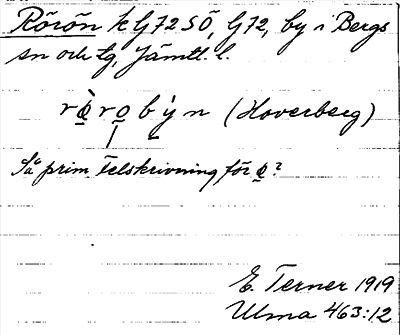 Rörön k G72 SÖ, G72, by i Bergs
sn och tg, Jämtl. l.
rø̀robýn (Hoverberg)
Så prim. Felskrivning för ø?
E. Terner 1919
Ulma 463:12